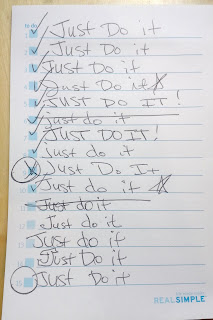 to do
1 Just Do it
2 Just Do it
3 Just Do it
4 Just Do it
5 JUST DO IT!
6 just do it
7 JUST DO IT!
8 just do it
9 Just Do It
10 Just do it
11 Just do it
12 Just do it
13 Just do it
14 Just Do it
15 Just Do it
REAL SIMPLE